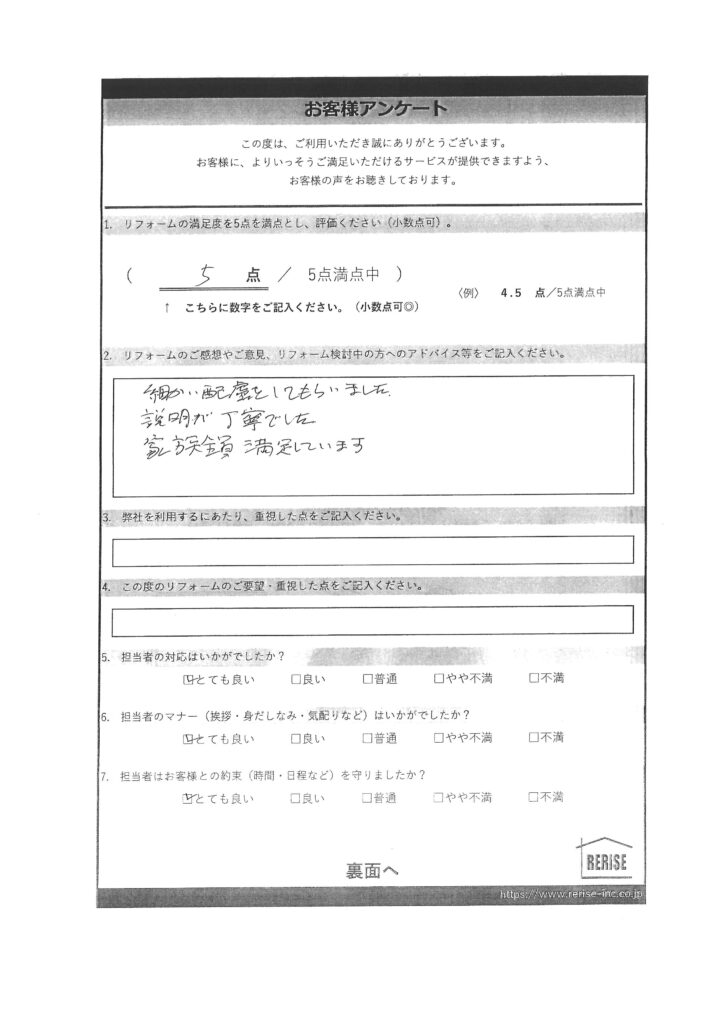 お客様アンケート
この度は、ご利用いただき誠にありがとうございます。
お客様に、よりいっそうご満足いただけるサービスが提供できますよう、
お客様の声をお聴きしております。
1. リフォームの満足度を5点を満点とし、評価ください（小数点可）。
( 5 点 / 5点満点中 )
〈例〉 4.5 点/5点満点中
↑ こちらに数字をご記入ください。（小数点可◎）
2. リフォームのご感想やご意見、リフォーム検討中の方へのアドバイス等をご記入ください。
細かい配慮をしてもらいました.
説明が丁寧でした
家族全員満足しています
3. 弊社を利用するにあたり、重視した点をご記入ください。
4. この度のリフォームのご要望・重視した点をご記入ください。
5. 担当者の対応はいかがでしたか？
☑とても良い □良い □普通 □やや不満 □不満
6. 担当者のマナー（挨拶・身だしなみ・気配りなど）はいかがでしたか？
☑とても良い □良い □普通 □やや不満 □不満
7. 担当者はお客様との約束（時間・日程など）を守りましたか？
☑とても良い □良い □普通 □やや不満 □不満
RERISE
裏面へ
https://www.rerise-inc.co.jp